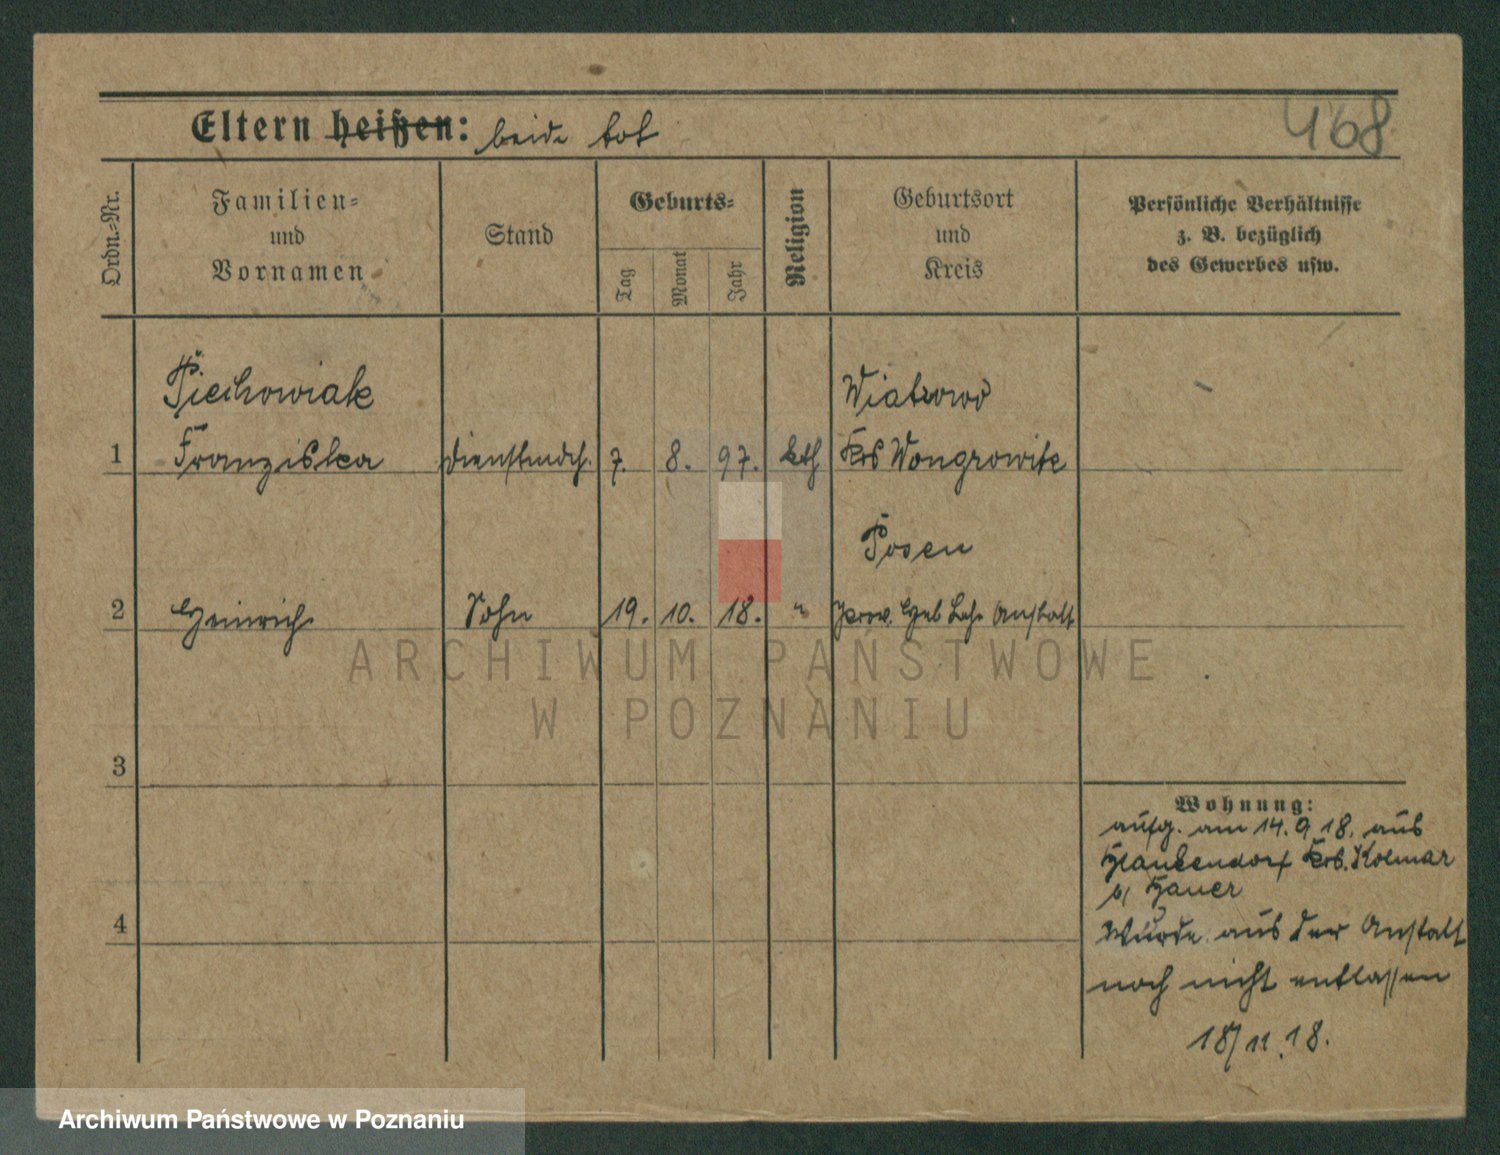 468
Eltern heißen: beide tot
Ordn.-Nr.
Familien-
und
Vornamen
Stand
Geburts-
Tag
Monat
Jahr
Religion
Geburtsort
und
Kreis
Persönliche Verhältnisse
z. B. bezüglich
des Gewerbes usw.
Piechowiak
Wiatrowo
1 Franziska Dienstmdch. 7. 8. 97. kth Krs Wongrowitz
Posen
2 Heinrich Sohn 19. 10. 18. " Prov. Heb Lehr Anstalt
ARCHIWUM PAŃSTWOWE
W POZNANIU
3
Wohnung:
aufg. am 14. 9. 18. aus
Krs. Kolmar
b/ Hauer
4
Wurde aus der Anstalt
noch nicht entlassen
18/11.18.
Archiwum Państwowe w Poznaniu